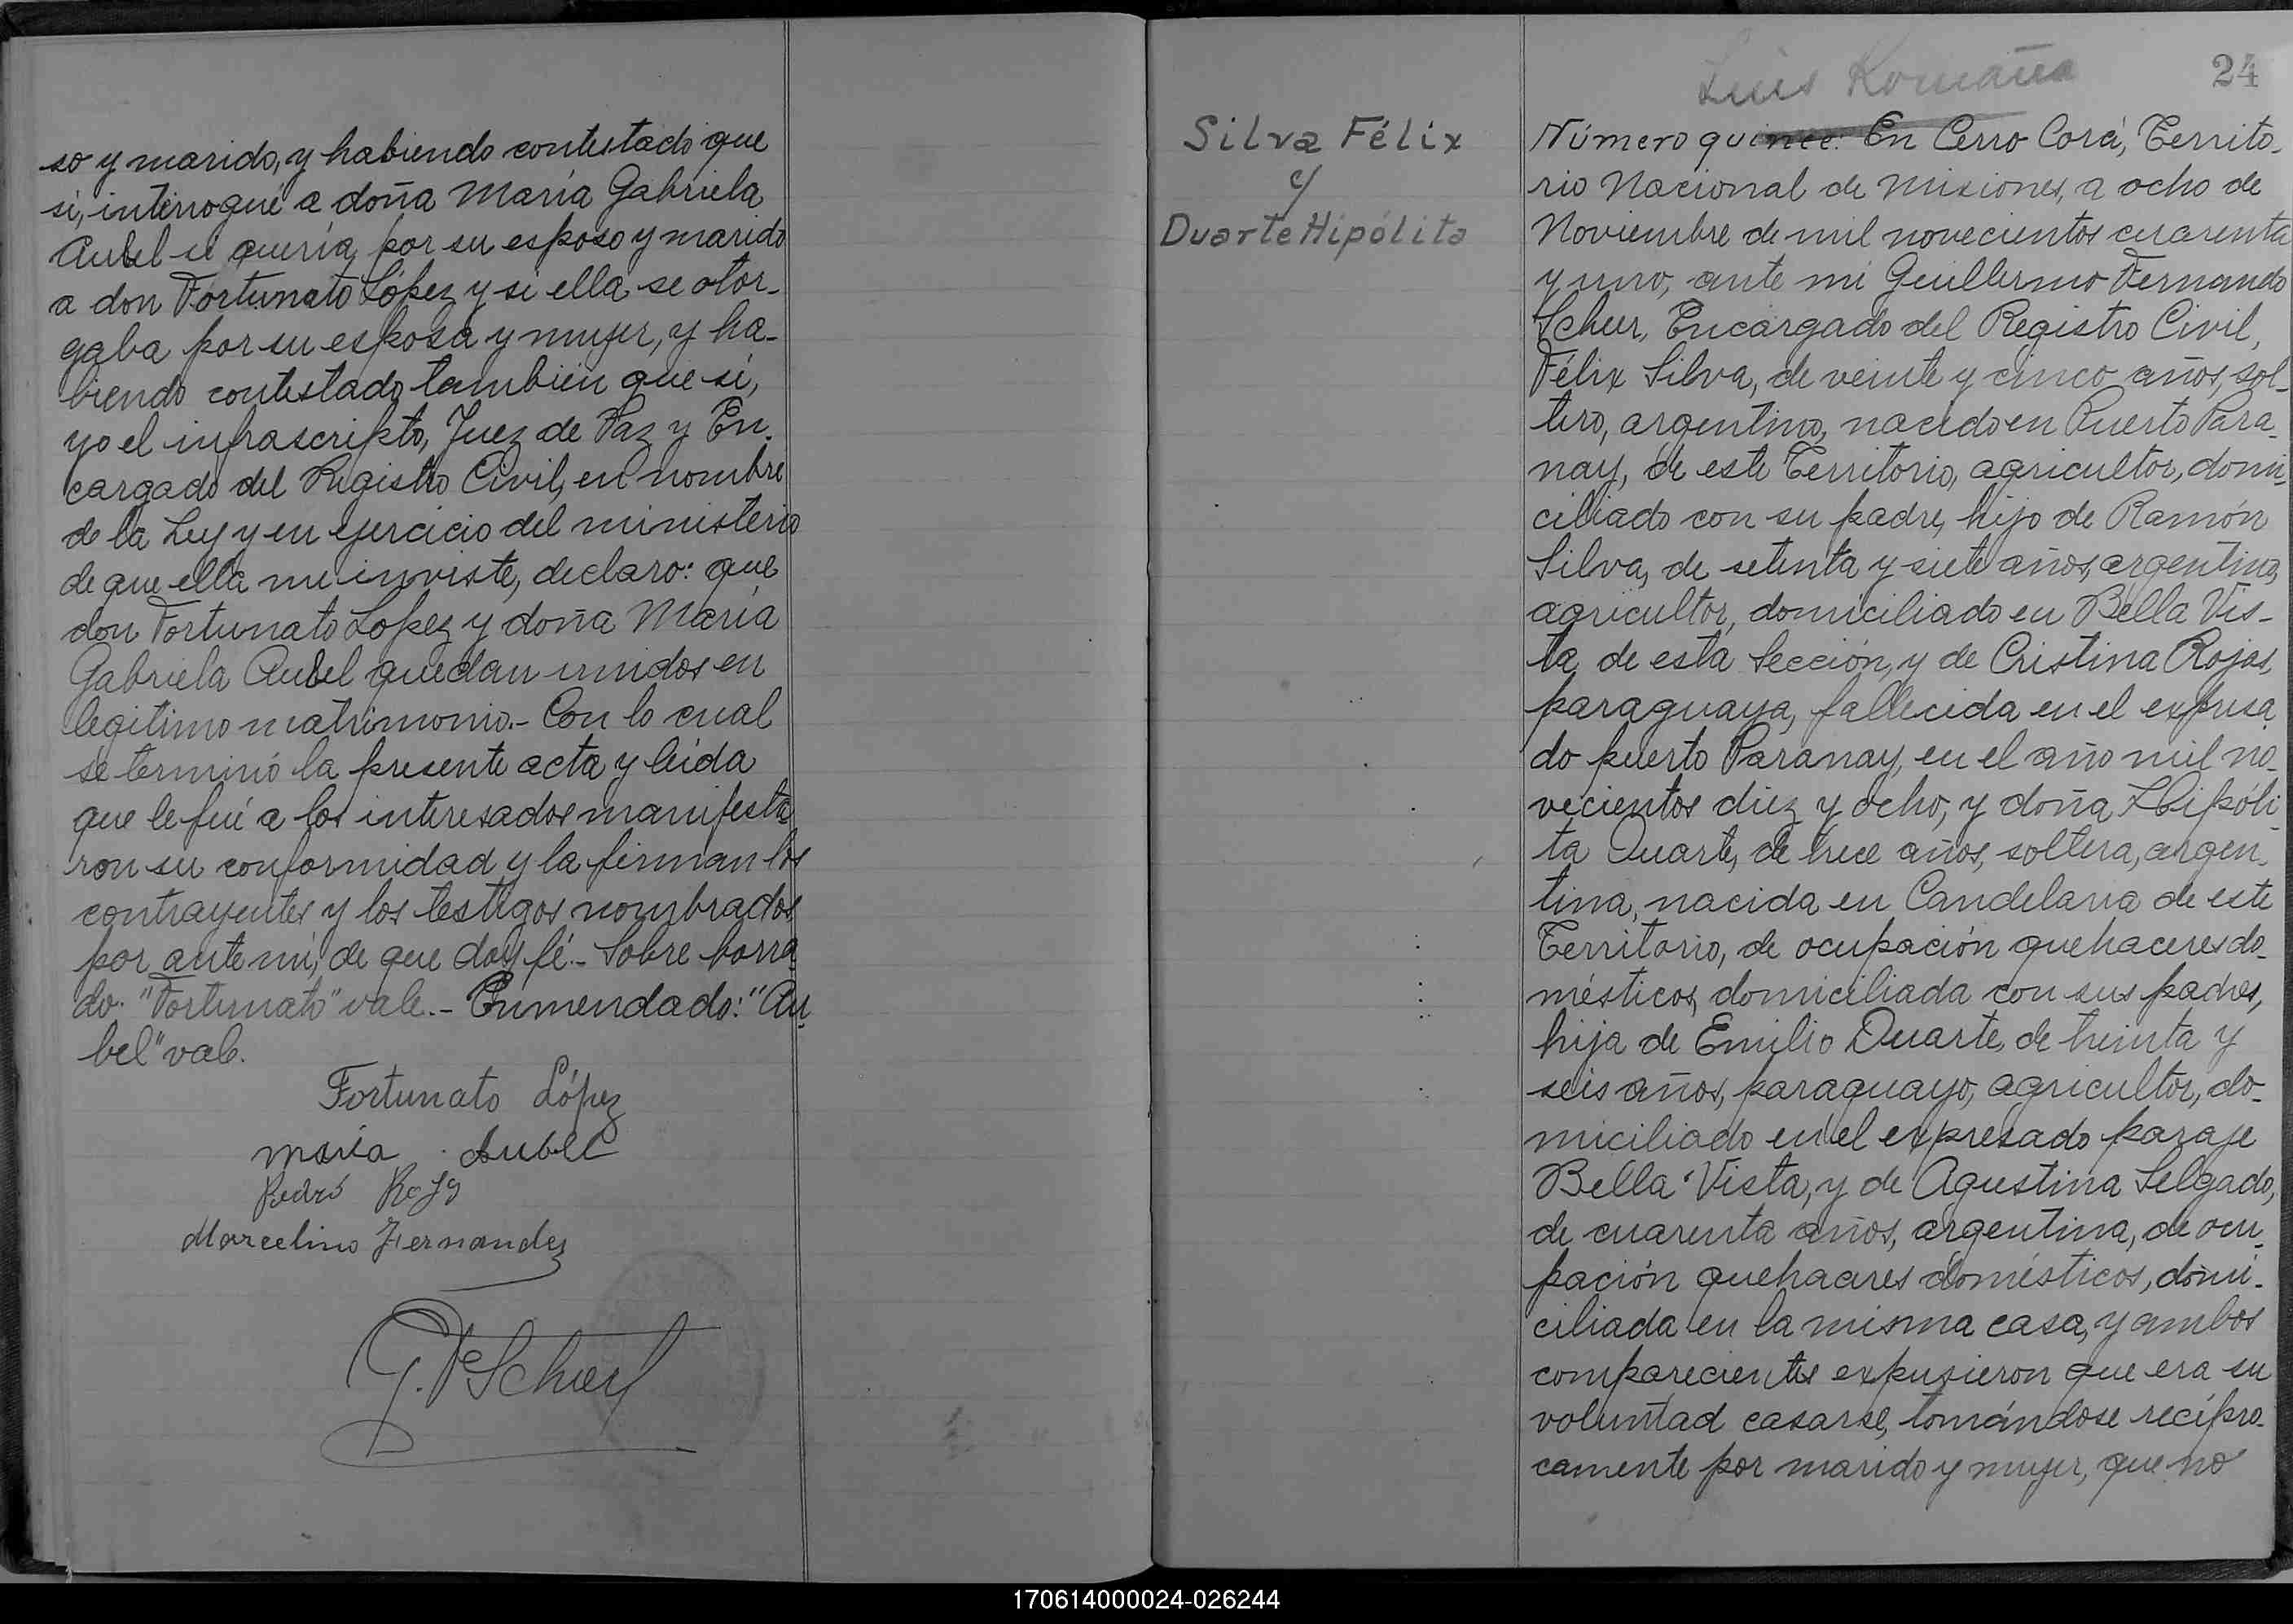 so y marido, y habiendo contestado que
si, interrogué a doña María Gabriela
Aubel si quería por su esposo y marido
a don Fortunato López y si ella se otor-
gaba por su esposa y mujer, y ha-
biendo contestado también que si,
yo el infrascripto, Juez de Paz y En-
cargado del Registro Civil, en nombre
de la Ley y en ejercicio del ministerio
de que ella me inviste, declaro: que
don Fortunato Lopez y doña María
Gabriela Aubel quedan unidos en
legitimo matrimonio.- Con lo cual
se terminó la presente acta y leída
que le fué a los interesados manifesta-
ron su conformidad y la firman los
contrayentes y los testigos nombrados
por ante mi, de que doy fé.- Sobre borra-
do: "Fortunato" vale.- Enmendado: "Au-
bel" vale.
Fortunato López
maria Aubel
Pedro
Marcelino Fernandez
G. F. Scheer
Silva Félix
y
Duarte Hipólita
Luis Romaña
24
Número quince: En Cerro Corá, Territo-
rio Nacional de Misiones, a ocho de
Noviembre de mil novecientos cuarenta
y uno, ante mi Guillermo Fernando
Scheer, Encargado del Registro Civil,
Félix Silva, de veinte y cinco años, sol-
tero, argentino, nacido en Puerto Para-
nay, de este Territorio, agricultor, domi-
ciliado con su padre, hijo de Ramón
Silva, de setenta y siete años, argentino,
agricultor, domiciliado en Bella Vis-
ta, de esta Sección, y de Cristina Rojas,
paraguaya, fallecida en el expresa-
do puerto Paranay, en el año mil no-
vecientos diez y ocho, y doña Hipóli-
ta Duarte, de trece años, soltera, argen-
tina, nacida en Candelaria de este
Territorio, de ocupación quehaceres do-
mésticos, domiciliada con sus padres,
hija de Emilio Duarte, de treinta y
seis años, paraguayo, agricultor, do-
miciliado en el expresado paraje
Bella Vista, y de Agustina Selgado,
de cuarenta años, argentina, de ocu-
pación quehaceres domésticos, domi-
ciliada en la misma casa, y ambos
comparecientes expusieron que era su
voluntad casarse, tomándose recípro-
camente por marido y mujer, que no
170614000024-026244